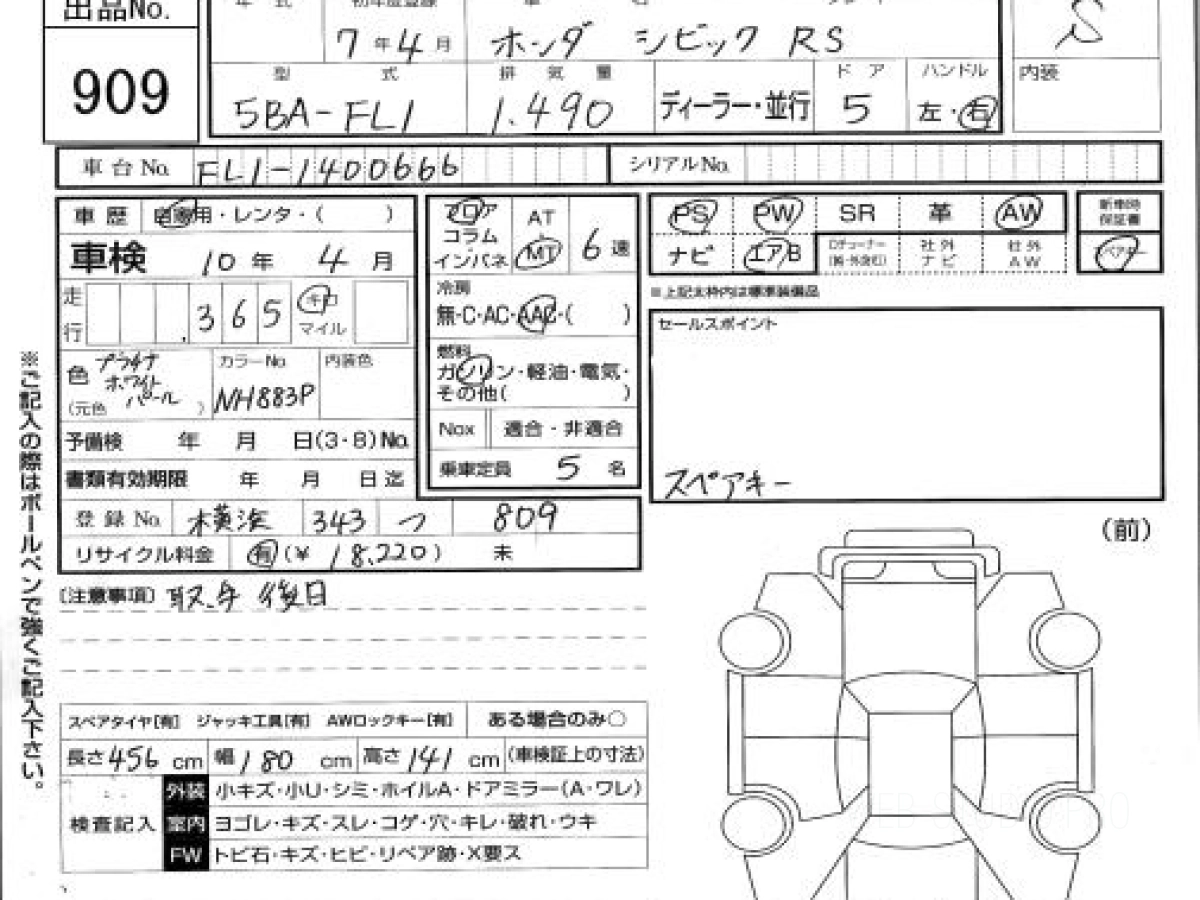 出品No.
年 式 初年度登録 車 名
909
7年4月 ホンダ シビック RS S
型 式 排 気 量 ド ア ハンドル 内装
5BA-FL1 1.490 ディーラー・並行 5 左・右
車台No. FL1-1400666 シリアルNo.
車歴 自家用・レンタ・( )
フロア コラム インパネ AT MT 6速
PS PW SR 革 AW 新車時保証書
車検 10年 4月
ナビ エアB Dチューナー 社外ナビ 社外AW スペアキー
※上記太枠内は標準装備品
走行 ,365 キロ マイル
冷房
無・C・AC・AAC・( )
セールスポイント
色 プラチナホワイトパール (元色 ) カラーNo. NH883P 内装色
燃料
ガソリン・軽油・電気・
その他( )
予備検 年 月 日(3・8)No.
Nox 適合・非適合
書類有効期限 年 月 日迄
乗車定員 5名
スペアキー
登録No. 横浜 343 つ 809
リサイクル料金 有(¥ 18,220) 未
(前)
〔注意事項〕取、手 後日
スペアタイヤ[有] ジャッキ工具[有] AWロックキー[有] ある場合のみ○
長さ456cm 幅180cm 高さ141cm (車検証上の寸法)
検査記入
外装 小キズ・小U・シミ・ホイルA・ドアミラー(A・ワレ)
室内 ヨゴレ・キズ・スレ・コゲ・穴・キレ・破れ・ウキ
FW トビ石・キズ・ヒビ・リペア跡・X要ス
※ご記入の際はボールペンで強くご記入下さい。